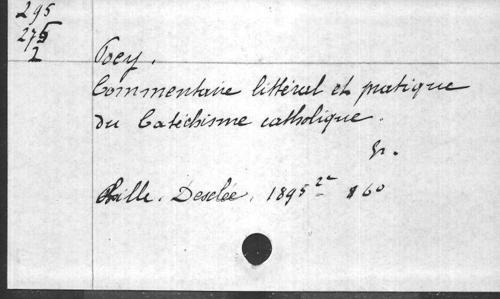 295
275
2
Poey.
Commentaire littéral et pratique
du Catéchisme catholique.
Lille. Desclée. 1895